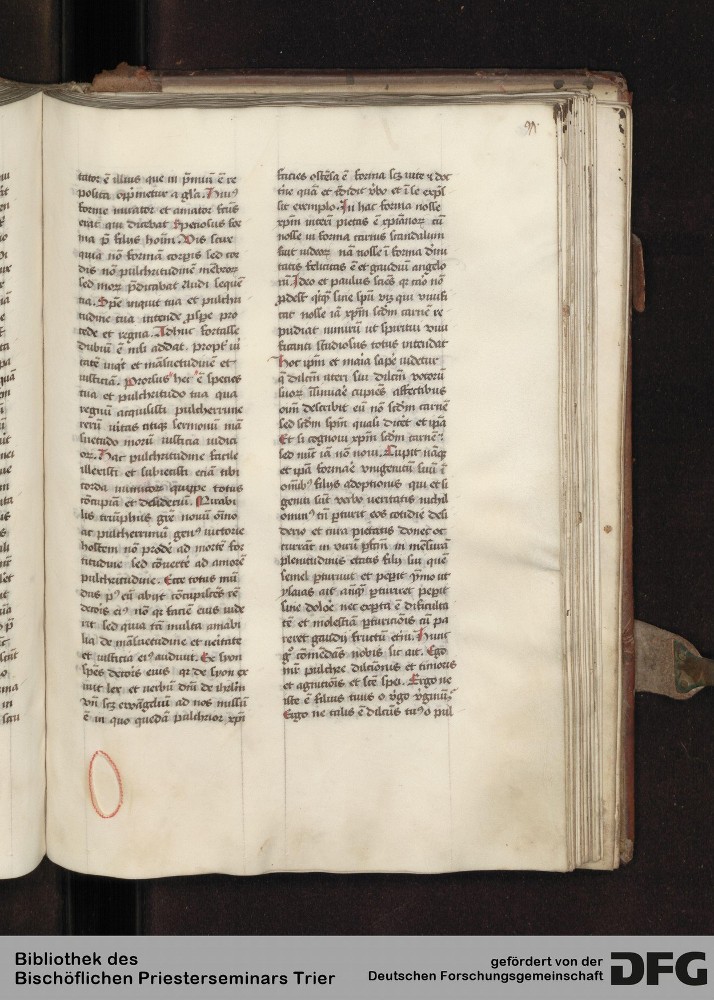 tator ē illius que in p̄miū ē re
posita opp̄metur a gl̄a. Huiꝰ
forme mirator et amator frūs
erat qui dicebat Speciosus for
ma p̄ filijs hoīm.
quia nō formam corpis sed cor
dis nō pulchritudinē mēbrorꝝ
sed morꝝ p̄dicabat
tua. Spē inquit tua et pulchri
tudine tua intende pspe pro
cede et regna. Adhuc fortasse
dubiū ē nisi addat propt̄ ui
tatē inqͥt et māsuetudinē et
iusticiā. Prorsus hec ē species
tua et pulchritudo tua qua
regnū acquisisti pulcherrime
rerū uitas sermonū mā
suetudo morū iusticia iudici
orꝝ. Hac pulchritudine facile
illexisti et subiecisti eciā tibi
corda inimicorꝝ quippe totus
cōcupia et desideriū. Mirabi
lis triūphus gn̄e nouū oīno
ac pulcherrimū genꝰ uictorie
hostem nō prodē ad mortē for
titudine sed cōuerte ad amorē
pulchritudine. Ecce totus mū
dus pꝰ eū abijt cōcupiscēs
decoris eiꝰ nō qꝛ faciē eius uide
rit sed quia tā multa amabi
lia de māsuetudine et ueritate
et iusticia eiꝰ audiuit. Ex syon
spēs decoris eius qꝛ de syon ex
iuit lex et uerbū dn̄i de ihrlm̄
vn̄ scꝫ ewāgeliū ad nos missū
ē in quo quedā pulchrior xp̄i
facies ostēsa ē forma scꝫ uite ⁊ doc
t̄ne quā et edidit ṽbo et ī se exp̄s
sit exemplo. In hac forma nosse
xp̄m interī pietas ē xp̄ianorꝝ cū
nosse in forma carnis scandalum
fuit iudeorꝝ nā nosse ī forma diui
tatis felicitas ē et gaudiū angelo
rū. Ideo et paulus sciēs qꝛ caro nō
pdest qͥcqͥ sine spū viꝫ qui viuifi
cat nosse iā xp̄m scdm̄ carnē re
pudiat nimirū ut spiritui viui
ficanti studiosus totus intendat
Hoc ip̄m et maīa sapē uidetur
q̄ dilcm̄ uteri sui dilcm̄ votorū
suorꝝ cupiēs affectibus
oīm describit eū nō scdm̄ carnē
sed scdm̄ spm̄ quasi dicēt et ip̄a
Et si cognoui xp̄m scdm̄ carnē
sed nūc iā nō noui. Cupit nāqꝫ
et ip̄a formare vnigenitū suū ī
oīnibꝰ filijs adoptionis qui etsi
geniti sūt verbo ueritatis nichil
ominꝰ tn̄ p̄turit eos cotidie desi
derio et cura pietatis donec oc
currāt in virū p̄fcm̄ in mēsurā
plenitudinis etatis filij sui quē
semel p̄turiuit et pep̄it ymo ut
ysaias ait antqͣ p̄turiret pep̄it
sine dolore nec experta ē difficulta
tē et molestiā p̄turicionis cū pa
reret gaudij fructū et̄nū. Hunc
gͦ cōmēdās nobis sic ait. Ego
mr̄ pulchre dilcionis et timoris
et agnicionis et scē spei. Ergo ne
iste ē filius tuus o v̄go v̄ginū
Ergo ne talis ē dilcūs tuꝰ o pul
Bibliothek des
Bischöflichen Priesterseminars Trier
gefördert von der
Deutschen Forschungsgemeinschaft
DFG